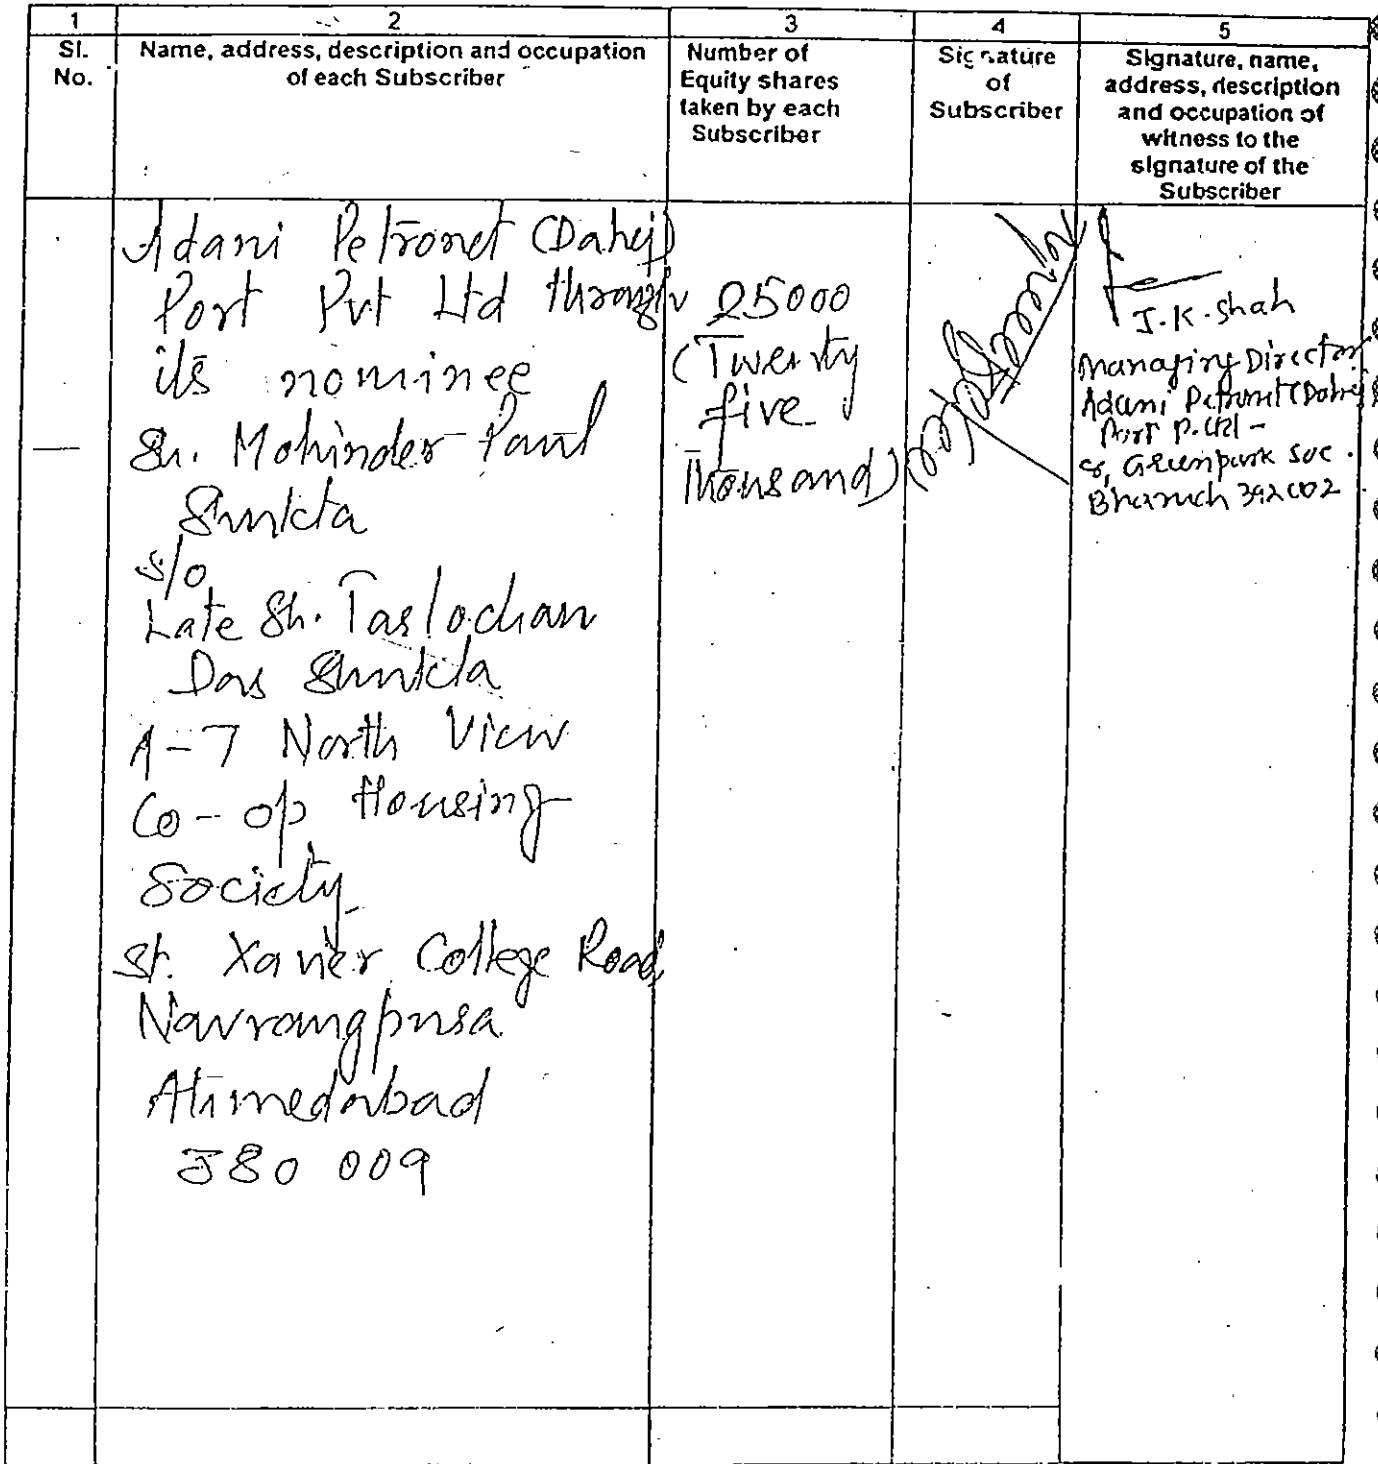 1 2 3 4 5
Sl.
No.
Name, address, description and occupation
of each Subscriber
Number of
Equity shares
taken by each
Subscriber
Signature
of
Subscriber
Signature, name,
address, description
and occupation of
witness to the
signature of the
Subscriber
Adani Petronet (Dahej)
Port Pvt Ltd through
its nominee
Sh. Mohinder Paul
s/o
Late Sh. Tarlochan
Das
A-7 North View
Co-op Housing
Society
St. Xavier College Road
Navrangpura
Ahmedabad
380 009
25000
(Twenty
five
Thousand)
J.K. Shah
Managing Director
Adani Petronet (Dahej)
Port P. Ltd -
Greenpark Soc.
Bharuch 392002